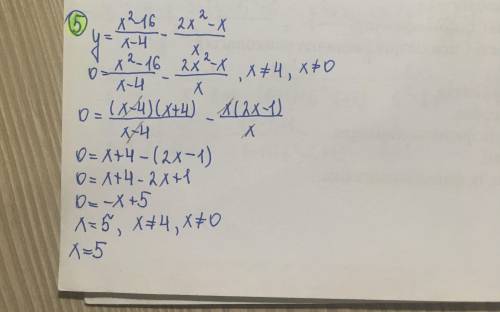 5) y = \frac{x²-16}{x-4} - \frac{2x²-x}{x}
0 = \frac{x²-16}{x-4} - \frac{2x²-x}{x}, x≠4, x≠0
0 = \frac{(x-4)(x+4)}{x-4} - \frac{x(2x-1)}{x}
0 = x+4-(2x-1)
0 = x+4-2x+1
0 = -x+5
x=5, x≠4, x≠0
x=5